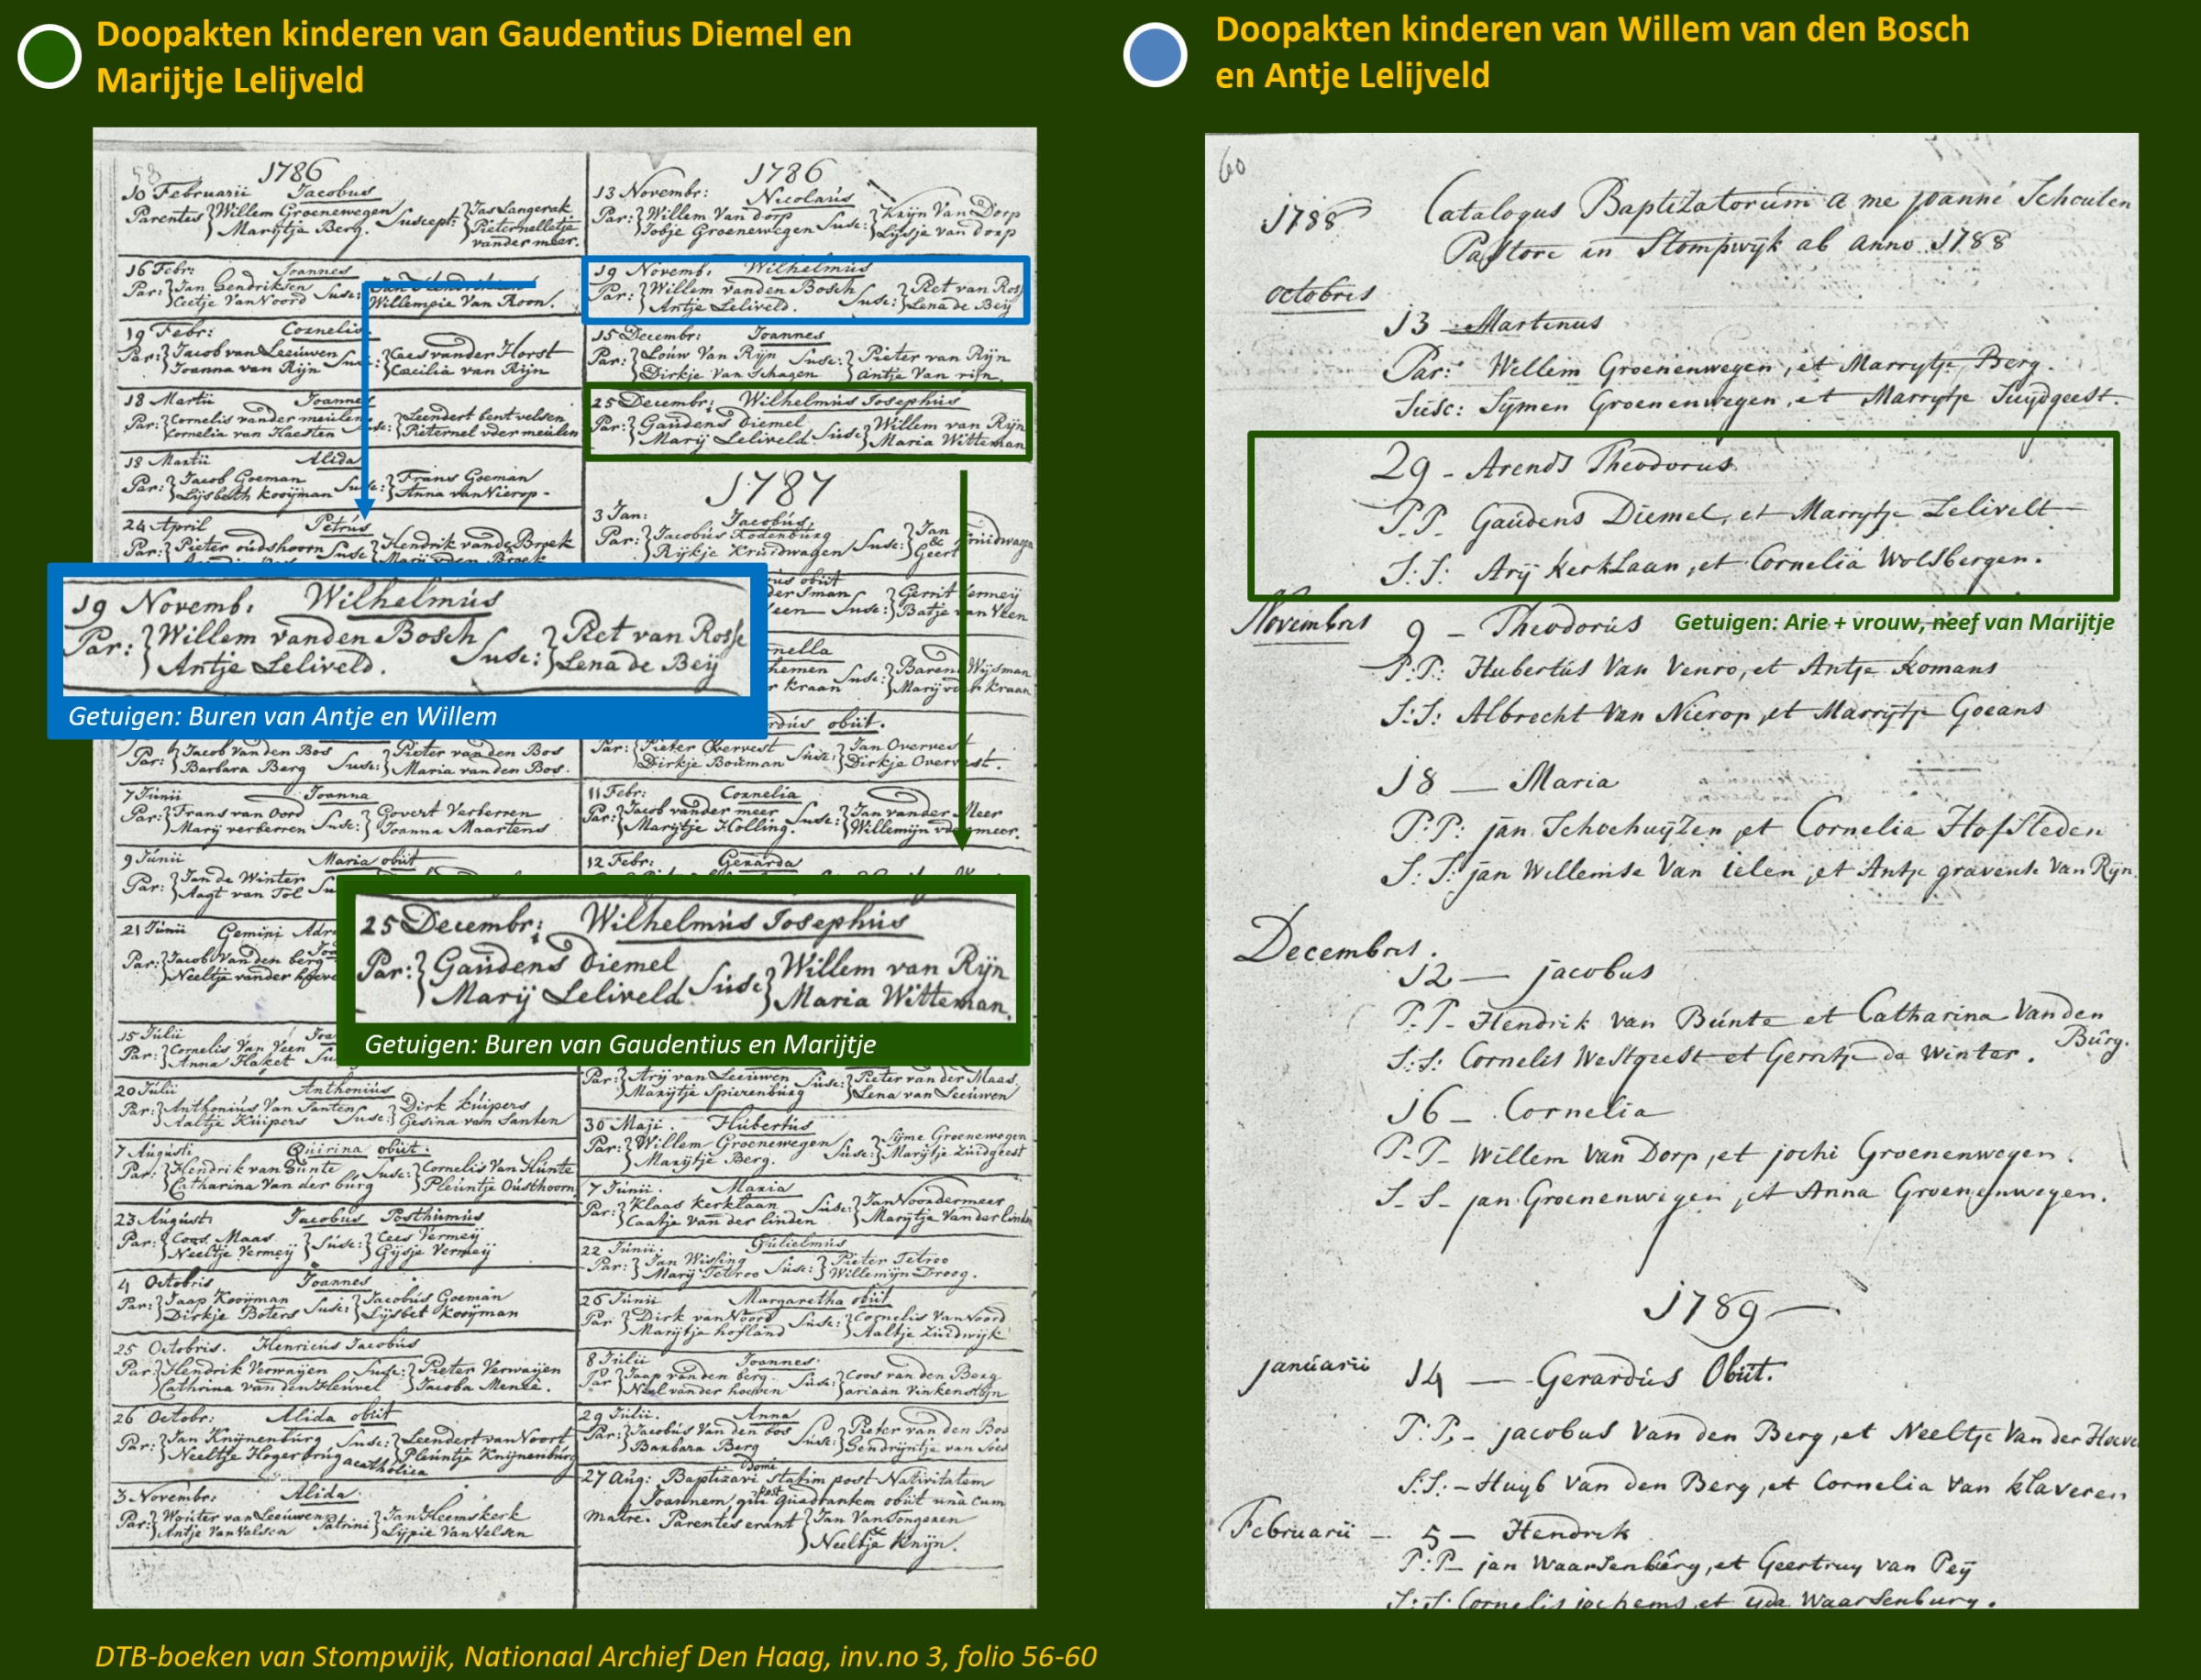 Doopakten kinderen van Gaudentius Diemel en
Marijtje Lelijveld
Doopakten kinderen van Willem van den Bosch
en Antje Lelijveld
58
1786
10 Februarii Jacobus
Parentes Willem Groenewegen Suscept: Jas Langerak
Marijtje Berg. Pieternelletje
vander meer.
16 Febr: Joannes
Par: Jan Hendriksen Susc:
Ceetje Van Noord Willempie Van Roon.
19 Febr: Cornelis
Par: Jacob van Leeuwen Caes vander Horst
Joanna van Rijn Caecilia van Rijn
18 Martii Joannes
Par: Cornelis vander meulen Leendert bent velsen
Cornelia van Haesten Pieternel vder meulen
18 Martii Alida
Par: Jacob Goeman Frans Goeman
Lijsbeth Kooijman Anna van Nierop -
24 April Petrus
Par: Pieter oudshoorn Susc: Hendrik vande Broek
19 Novemb: Wilhelmus
Par: Willem vanden Bosch Susc: Piet van Rosse
Antje Leliveld. Lena de Beij
Getuigen: Buren van Antje en Willem
Par: Jacob van den Bos Susc: Pieter van den Bos
Barbara Berg Maria van den Bos.
7 Junii Joanna
Par: Frans van Oord Susc: Govert Verberren
Marij verberren Joanna Maartens
9 Junii Maria obiit
Par: Jan de Winter
Aagt van Tol
21 Junii Gemini
Par: Jacob Van den berg
Neeltje vander hoeve
15 Julii
Par: Cornelis Van Veen
Anna Haket
20 Julii Anthonius
Par: Anthonius Van Santen Susc: Dirk Kuipers
Aaltje Kuipers Gesina van Santen
7 Augusti Quirina obiit.
Par: Hendrik van Bunte Susc: Cornelis Van Hunte
Catharina Van der burg Pleuntje Ousthoorn
23 August: Jacobus Posthumus
Par: Coos Maas Susc: Cees Vermeij
Neeltje Vermeij Gijsje Vermeij
4 Octobris Joannes
Par: Jaap Kooijman Susc: Jacobus Goeman
Dirkje Boters Lijsbet Kooijman
25 Octobris. Henricus Jacobus
Par: Hendrik Verwaijen Susc: Pieter Verwaijen
Cathrina van den Heuvel Jacoba Menze.
26 Octobr: Alida obiit
Par: Jan Knijnenburg Susc: Leendert van Noort
Neeltje Hogerbrug acatholica Pleuntje Knijnenburg
3 Novembr: Alida.
Par: Wouter van Leeuwen Patrini Jan Heemskerk
Antje Van Velsen Lijpie Van Velsen
1786
13 Novembr: Nicolaus
Par: Willem Van dorp Susc: Krijn Van Dorp
Jobje Groenewegen Lijsje van dorp
19 Novemb: Wilhelmus
Par: Willem vanden Bosch Susc: Piet van Ross
Antje Leliveld. Lena de Beij
15 Decembr: Joannes
Par: Louw Van Rijn Susc: Pieter van Rijn
Dirkje Van Schagen antje Van rijn.
25 Decembr: Wilhelmus Josephus
Par: Gaudens Diemel Susc: Willem van Rijn
Marij Leliveld Maria Witteman
1787
3 Jan: Jacobus
Par: Jacobus Rodenburg Susc: Jan &
Rijkje Kruidwagen Geert
obiit
Susc: Gerrit
Batje van Veen
Susc: Barend Wijsman
kraan
obiit.
Par: Pieter Overvest Susc: Jan Overvest
Dirkje Bouman Dirkje Overvest.
11 Febr: Cornelia
Par: Jacob vander meer Susc: Jan vander Meer
Marijtje Holling. Willemijn vdr meer.
12 Febr: Gerarda
25 Decembr: Wilhelmus Josephus
Par: Gaudens Diemel Susc: Willem van Rijn
Marij Leliveld Maria Witteman.
Getuigen: Buren van Gaudentius en Marijtje
Par: Arij van Leeuwen Susc: Pieter van der Maas
Marijtje Spierenburg Lena van Leeuwen
30 Maji. Hubertus
Par: Willem Groenewegen Susc: Sijme Groenewegen
Marijtje Berg. Marijtje Zuidgeest
7 Junii. Maria
Par: Klaas Kerklaan Susc: Jan Noordermeer
Caatje van der linden Marijtje Van der linde
22 Junii. Gulielmus
Par: Jan Wissing Susc: Pieter Tetroo
Marij Tetroo Willemijn Droog.
26 Junii Margaretha obiit
Par Dirk van Noord Susc: Cornelis Van Noord
Marijtje hofland Aaltje Zuidwijk
8 Julii Joannes
Par Jaap vanden berg. Susc: Coos van den Berg
Neel vander hoeven ariaan Vinkensteijn
29 Julii. Anna
Par: Jacobus Van den bos Susc: Pieter van den Bos
Barbara Berg Hendrijntje van
27 Aug: Baptizavi Domi statim post Nativitatem
Joannem, qui post Quadrantem obiit una cum
matre. Parentes erant Jan Van Tongeren
&
Neeltje Knijn.
60
1788 Catalogus Baptizatorum a me Joanne Schouten
Pastore in Stompwijk ab anno 1788
octobris
13 - Martinus
Par: Willem Groenenwegen, et Marrytje Berg.
Susc: Sijmen Groenenwegen, et Marrytje Suydgeest.
29 - Arends Theodorus
P.P. Gaudens Diemel, et Marrytje Lelivelt
S:S: Arij Kerklaan, et Cornelia Wolsbergen.
Getuigen: Arie + vrouw, neef van Marijtje
Novembris 9 - Theodorus
P:P: Hubertus Van Venro, et Antje Komans
S:S: Albrecht Van Nierop, et Marrytje Goeans
18 - Maria
P:P: jan Schoehuyzen, et Cornelia Hofsteden
S:S: jan Willemse Van Lelen, et Antje gravense Van Rijn.
Decembris.
12 - jacobus
P.P. Hendrik van Bunte et Catharina Vanden
Burg.
S:S: Cornelis Westgeest et Gerritje de Winter.
16 - Cornelia
P.P. Willem Van Dorp, et jochi Groenenwegen.
S-S- jan Groenenwegen, et Anna Groenenwegen.
1789
januarii 14 - Gerardus Obiit.
P:P,- jacobus Van den Berg, et Neeltje Van der Hoeve
S:S: - Huyb Van den Berg, et Cornelia Van Klaveren
Februarii - 5 - Hendrik
P:P- jan Waarsenberg, et Geertruy van Peij
S:S: Cornelis jochems, et Yda Waarsenburg.
DTB-boeken van Stompwijk, Nationaal Archief Den Haag, inv.no 3, folio 56-60